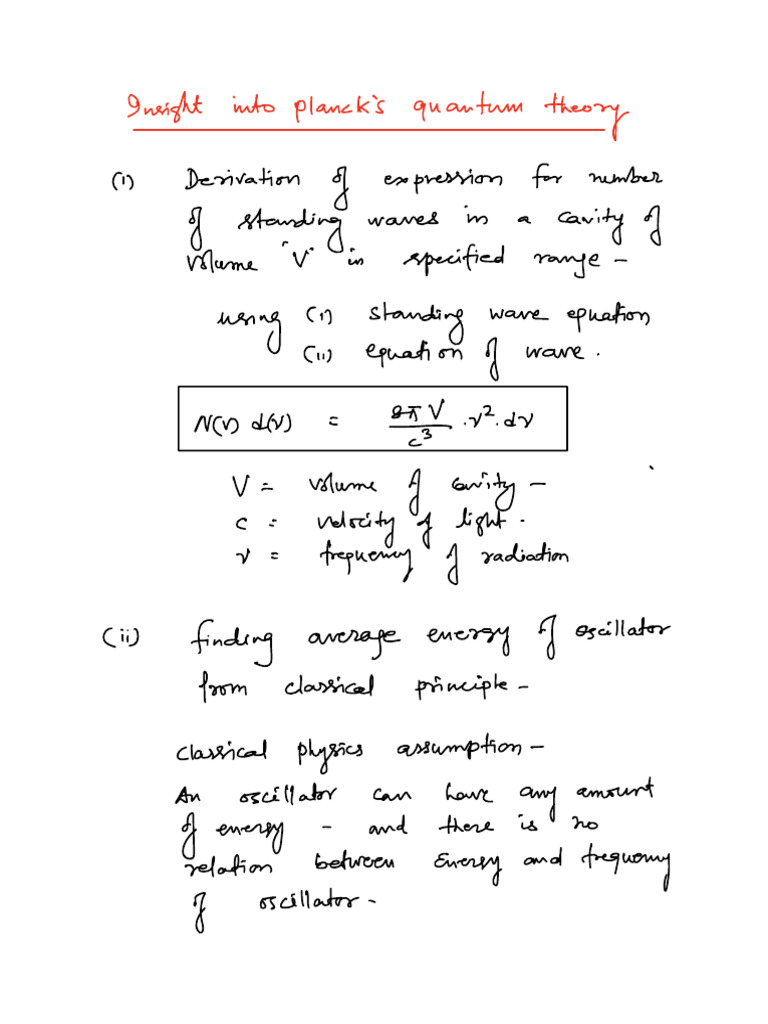 Insight into planck's quantum theory
(i) Derivation of expression for number
of standing waves in a cavity of
volume "V" in specified range -
using (i) standing wave equation
(ii) equation of wave.
N(ν) d(ν) = 8π V / c³ · ν² · dν
V = volume of cavity -
c = velocity of light.
ν = frequency of radiation
(ii) finding average energy of oscillator
from classical principle -
classical physics assumption -
An oscillator can have any amount
of energy - and there is no
relation between Energy and frequency
of oscillator -